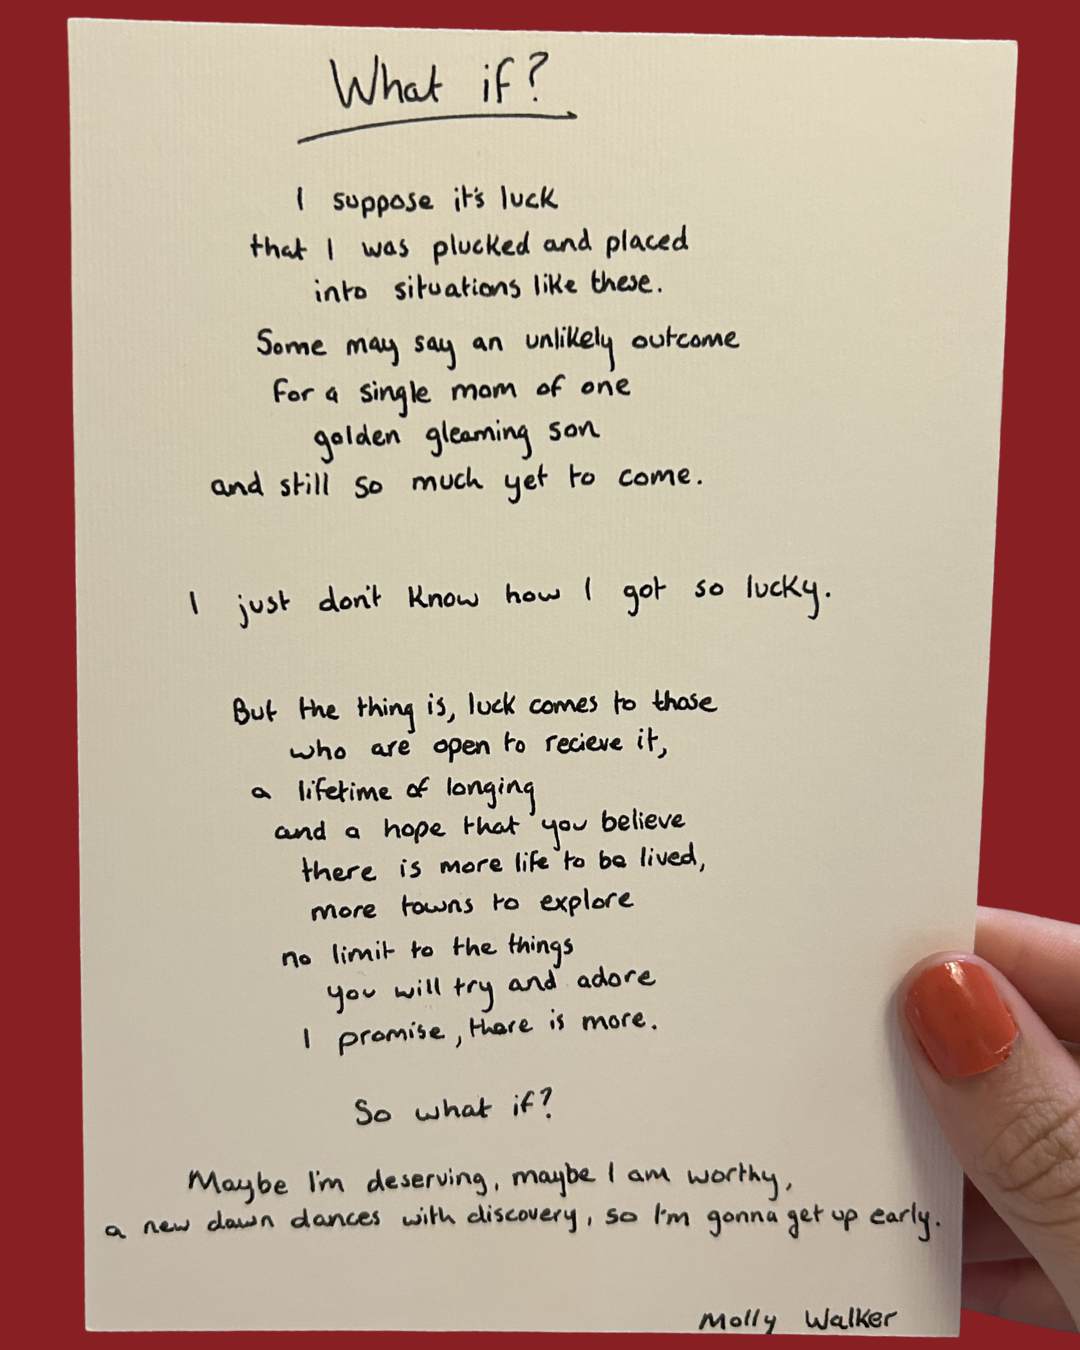 What if?
I suppose it's luck
that I was plucked and placed
into situations like these.
Some may say an unlikely outcome
for a single mom of one
golden gleaming son
and still so much yet to come.
I just don't know how I got so lucky.
But the thing is, luck comes to those
who are open to recieve it,
a lifetime of longing
and a hope that you believe
there is more life to be lived,
more towns to explore
no limit to the things
you will try and adore
I promise, there is more.
So what if?
Maybe I'm deserving, maybe I am worthy,
a new dawn dances with discovery, so I'm gonna get up early.
Molly Walker